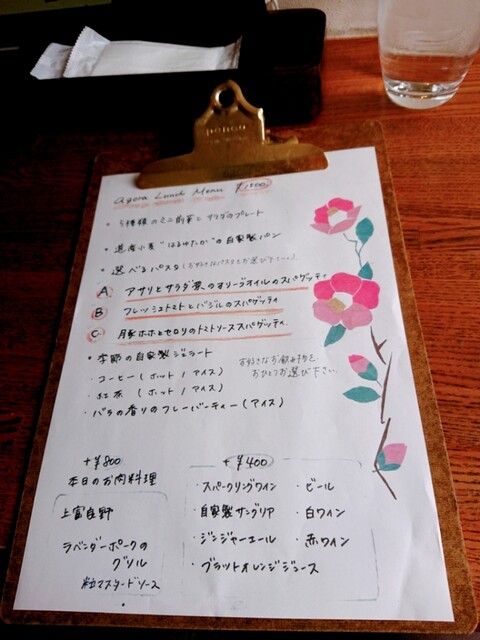 penco
agora Lunch Menu ¥1800
・5種様のミニ前菜とサラダのプレート
・道産小麦"はるゆたか"の自家製パン
・選べるパスタ(お好きなパスタをお選び下さい)
A アサリとサラダ菜のオリーブオイルのスパゲッティ
B フレッシュトマトとバジルのスパゲッティ
C 豚ホホとセロリのトマトソーススパゲッティ
・季節の自家製ジェラート
・コーヒー(ホット/アイス)
お好きなお飲み物を
おひとつお選び下さい。
・紅茶(ホット/アイス)
・バラの香りのフレーバーティー(アイス)
+¥800
本日のお肉料理
上富良野
ラベンダーポークの
グリル
粒マスタードソース
+¥400
・スパークリングワイン ・ビール
・自家製サングリア ・白ワイン
・ジンジャーエール ・赤ワイン
・ブラッドオレンジジュース